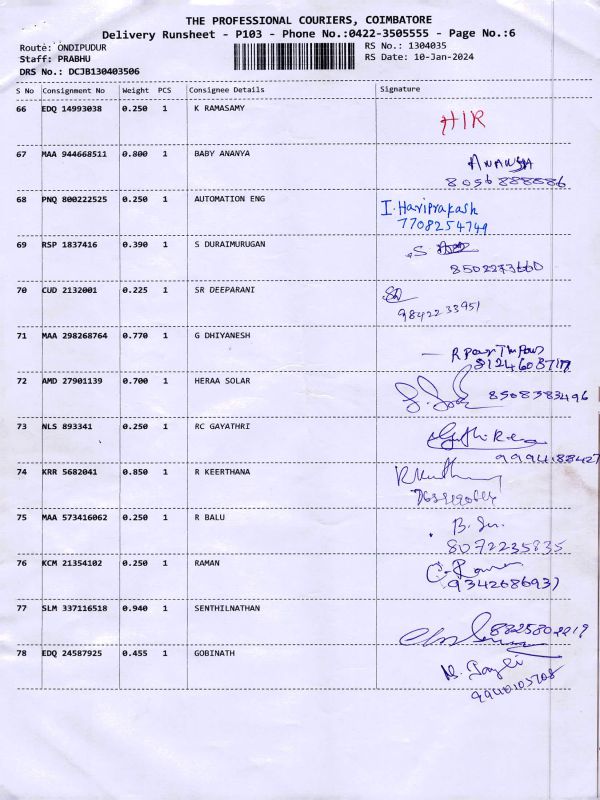 THE PROFESSIONAL COURIERS, COIMBATORE
Delivery Runsheet - P103 - Phone No.:0422-3505555 - Page No.:6
Route: ONDIPUDUR RS No.: 1304035
Staff: PRABHU RS Date: 10-Jan-2024
DRS No.: DCJB130403506
S No Consignment No Weight PCS Consignee Details Signature
66 EDQ 14993038 0.250 1 K RAMASAMY
HIR
67 MAA 944668511 0.800 1 BABY ANANYA
8056888586
68 PNQ 800222525 0.250 1 AUTOMATION ENG
I. Hariprakash
7708254749
69 RSP 1837416 0.390 1 S DURAIMURUGAN
S
8502273660
70 CUD 2132001 0.225 1 SR DEEPARANI
9842233951
71 MAA 298268764 0.770 1 G DHIYANESH
72 AMD 27901139 0.700 1 HERAA SOLAR
8508383496
73 NLS 893341 0.250 1 RC GAYATHRI
9994188427
74 KRR 5682041 0.850 1 R KEERTHANA
75 MAA 573416062 0.250 1 R BALU
8072235835
76 KCM 21354102 0.250 1 RAMAN
9342686937
77 SLM 337116518 0.940 1 SENTHILNATHAN
8825802219
78 EDQ 24587925 0.455 1 GOBINATH